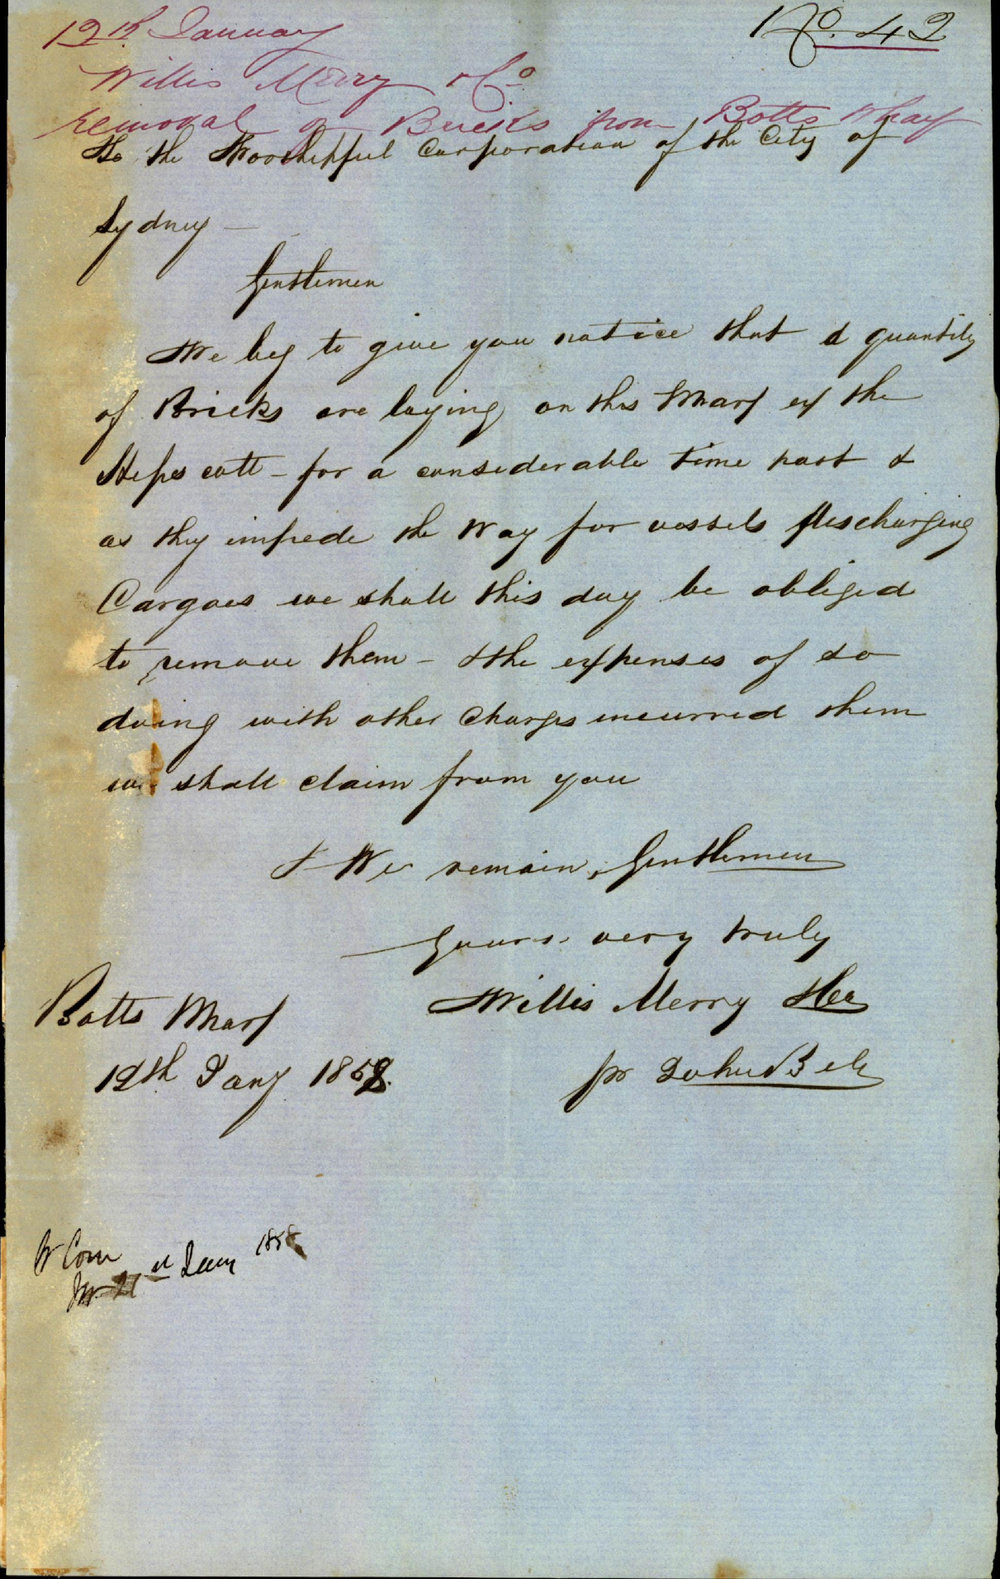 No. 42
12th January
Willis Merry & Co
removal of Bricks from Botts Wharf
To the Worshipful Corporation of the City of
Sydney –
Gentlemen
We beg to give you notice that a quantity
of Bricks are laying on this Wharf ex the
Ships cutt – for a considerable time past &
as they impede the way for vessels discharging
Cargoes we shall this day be obliged
to remove them – & the expenses of so
doing with other Charges incurred them
we shall claim from you
& We remain, Gentlemen
Yours very truly
Willis Merry & Co
pr
Botts Wharf
12th Jany 1858.
Com
21st Jany 1858